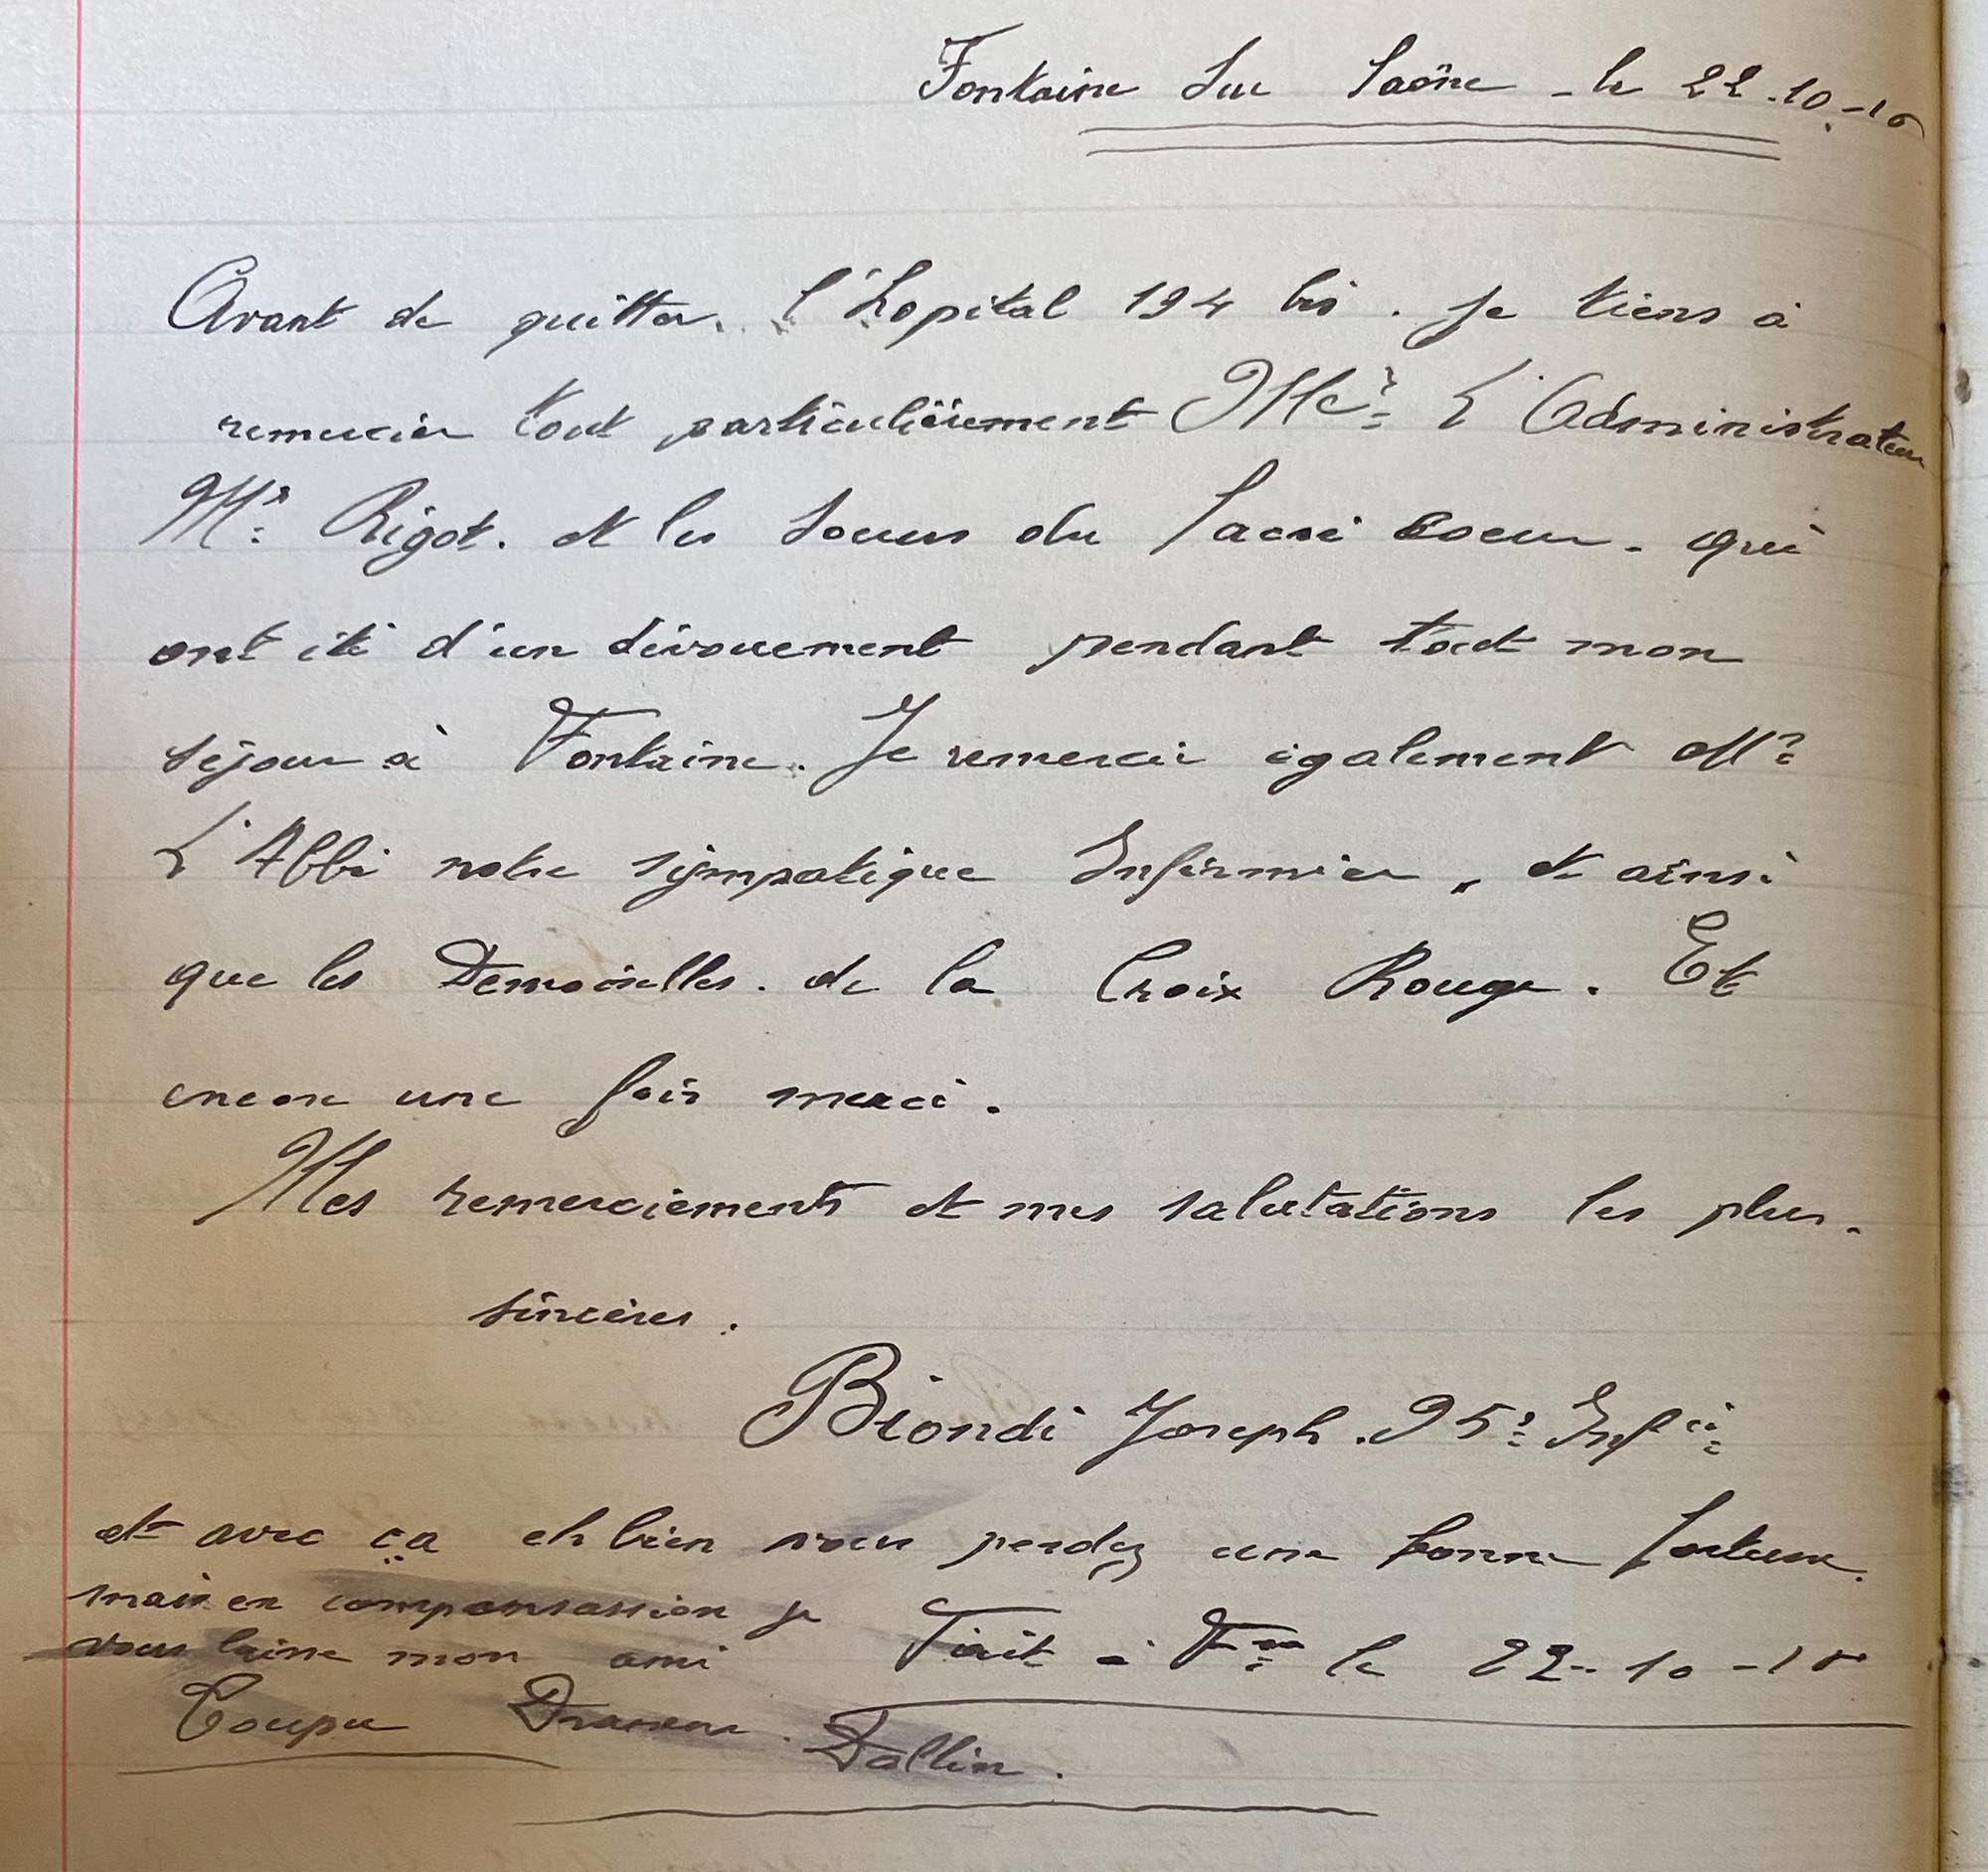 Fontaine sur Saône - le 22-10-16
Avant de quitter. l'hopital 194 bis. je tiens à
remercier tout particulièrement Mr L'Administrateur
Mr Rigot. et les Soeurs du Sacré Coeur. qui
ont été d'un dévouement pendant tout mon
séjour à Fontaine. Je remercie également Mr
L'Abbé notre sympatique Infirmier, et ainsi
que les Demoiselles. de la Croix Rouge. Et
encore une fois merci.
Mes remerciements et mes salutations les plus.
sincères.
Biondi Joseph. 95e Infie
et avec ça eh bien vous perdez une bonne
mais en compansassion je
vous laisse mon ami
Fait à Fne le 22-10-16
Dallin.